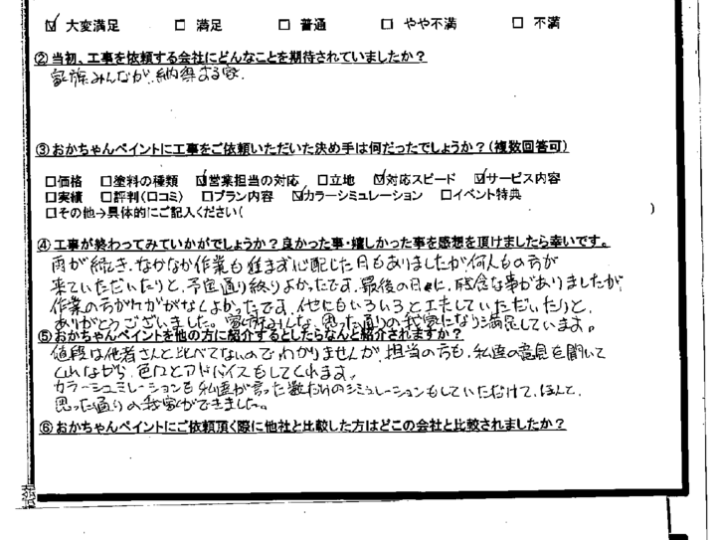 ☑ 大変満足 □ 満足 □ 普通 □ やや不満 □ 不満
②当初、工事を依頼する会社にどんなことを期待されていましたか？
家族みんなが、納得する家.
③おかちゃんペイントに工事をご依頼いただいた決め手は何だったでしょうか？（複数回答可）
□価格 □塗料の種類 ☑営業担当の対応 □立地 ☑対応スピード ☑サービス内容
□実績 □評判（口コミ） □プラン内容 ☑カラーシミュレーション □イベント特典
□その他→具体的にご記入ください（ ）
④工事が終わってみていかがでしょうか？良かった事・嬉しかった事を感想を頂けましたら幸いです。
雨が続き、なかなか作業も進まず心配した日もありましたが、何人もの方が
来ていただいたりと、予定通り終りよかったです。最後の日に、残念な事がありましたが、
作業の方がケガがなくよかったです。他にもいろいろと工夫していただいたりと、
ありがとうございました。家族みんな、思った通りの我家になり満足しています。
⑤おかちゃんペイントを他の方に紹介するとしたらなんと紹介されますか？
値段は他者さんと比べてないのでわかりませんが、担当の方も、私達の意見を聞いて
くれながら、色々とアドバイスもしてくれます。
カラーシュミレーションも私達が言った数だけのシミュレーションもしていただけて、ほんと、
思った通りの我家ができました。
⑥おかちゃんペイントにご依頼頂く際に他社と比較した方はどこの会社と比較されましたか？